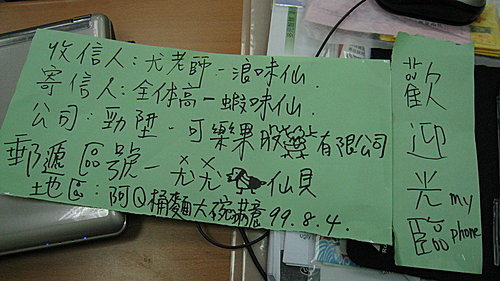 收信人：尤老師－浪味仙．
寄信人：全体高一蝦味仙．
公司：勁陞．可樂果股有限公司
郵遞區號－尤尤仙貝
土地區：阿Q桶麵大碗 99.8.4.
歡迎光臨 my phone